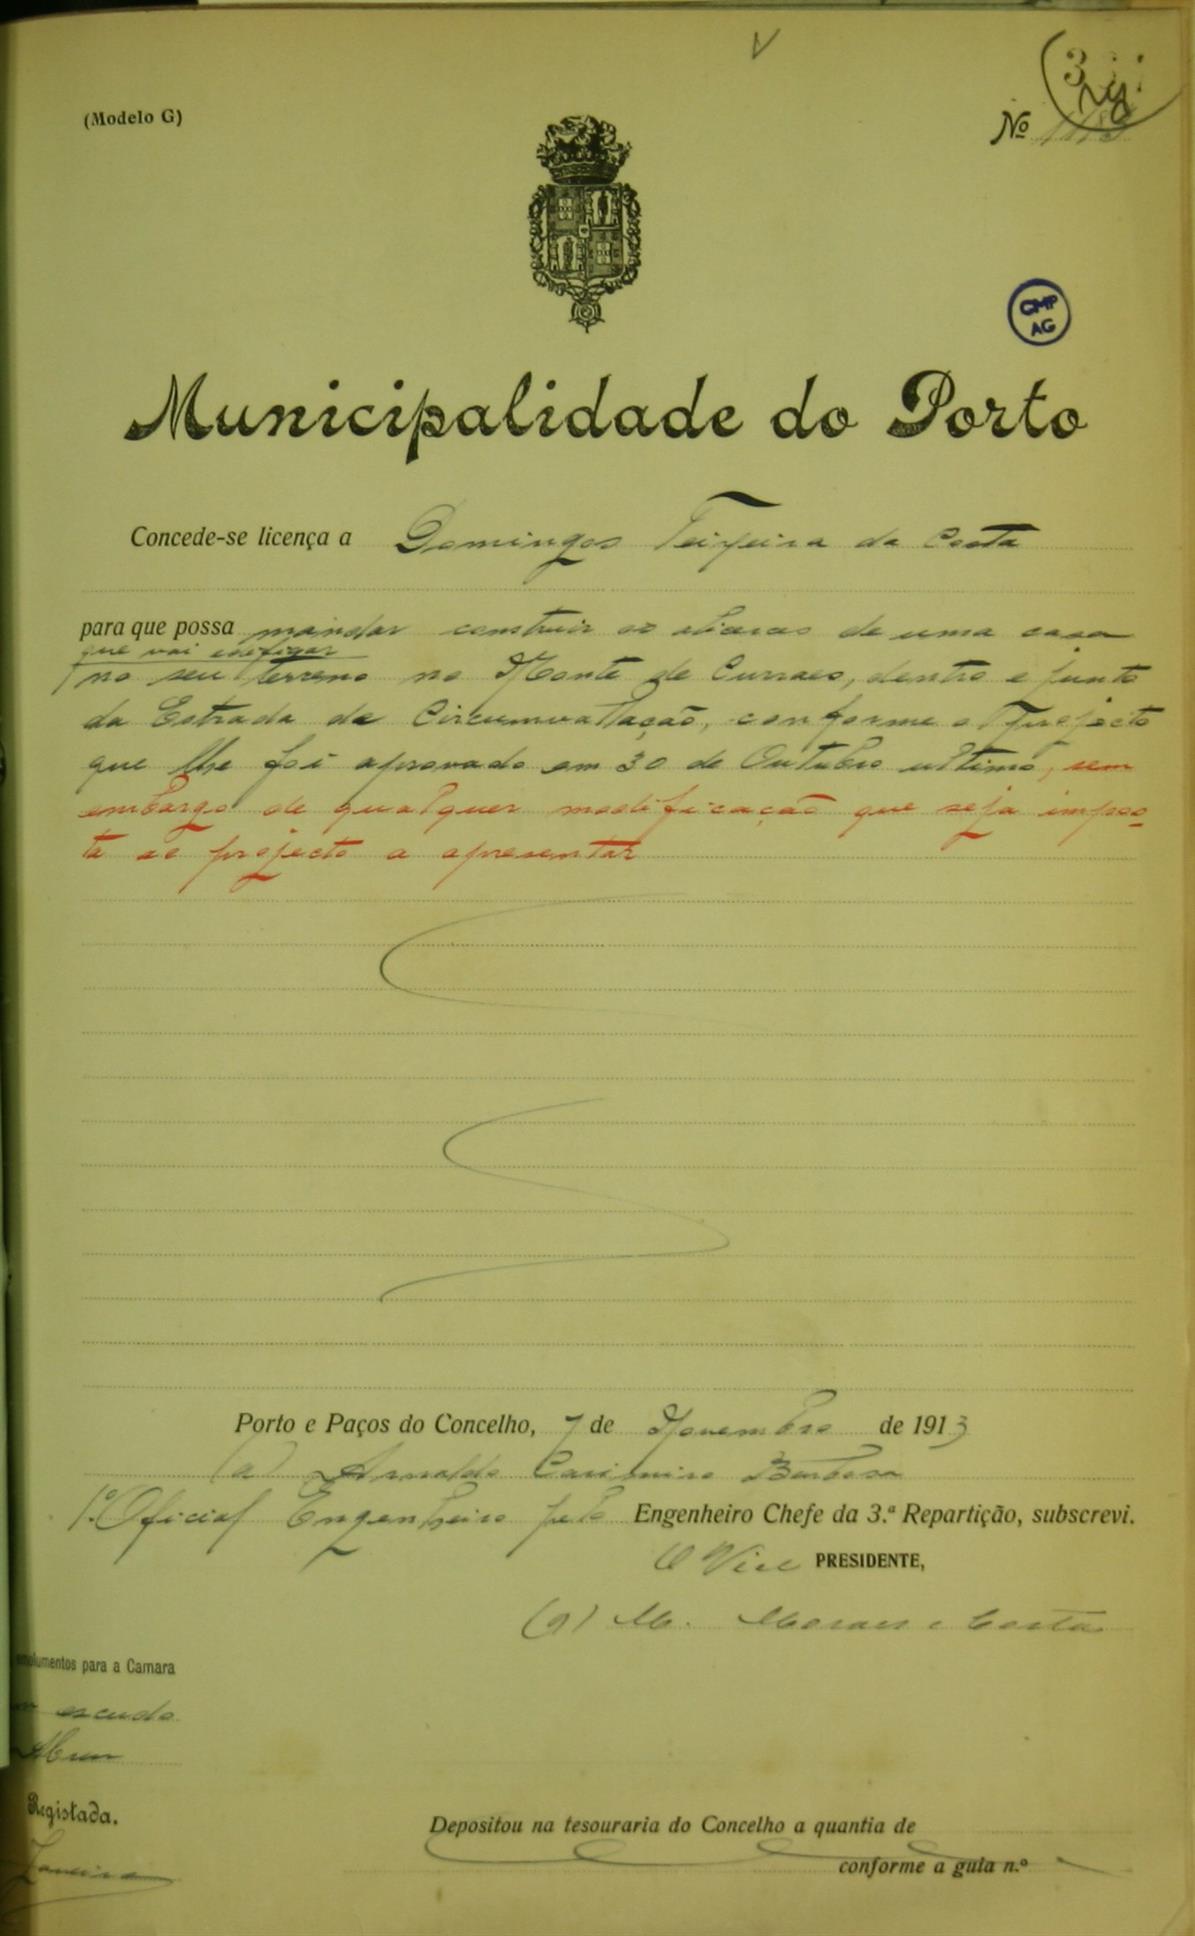 (Modelo G)
Nº
CMP
AG
Municipalidade do Porto
Concede-se licença a Domingos Teixeira da Costa
para que possa mandar construir os alicerces de uma casa
que vai edificar
no seu terreno no Monte de Curraes, dentro e junto
da Estrada da Circumvallação, conforme o projecto
que lhe foi aprovado em 30 de Outubro ultimo, sem
embargo de qualquer modificação que seja impos-
ta ao projecto a apresentar
Porto e Paços do Concelho, 7 de Novembro de 1913
(a) Arnaldo Casimiro Barbosa
1.º Oficial Engenheiro pelo Engenheiro Chefe da 3.ª Repartição, subscrevi.
O Vice PRESIDENTE,
(a) M. Moraes e Costa
emolumentos para a Camara
escudo
Registada.
Depositou na tesouraria do Concelho a quantia de
conforme a guia n.º